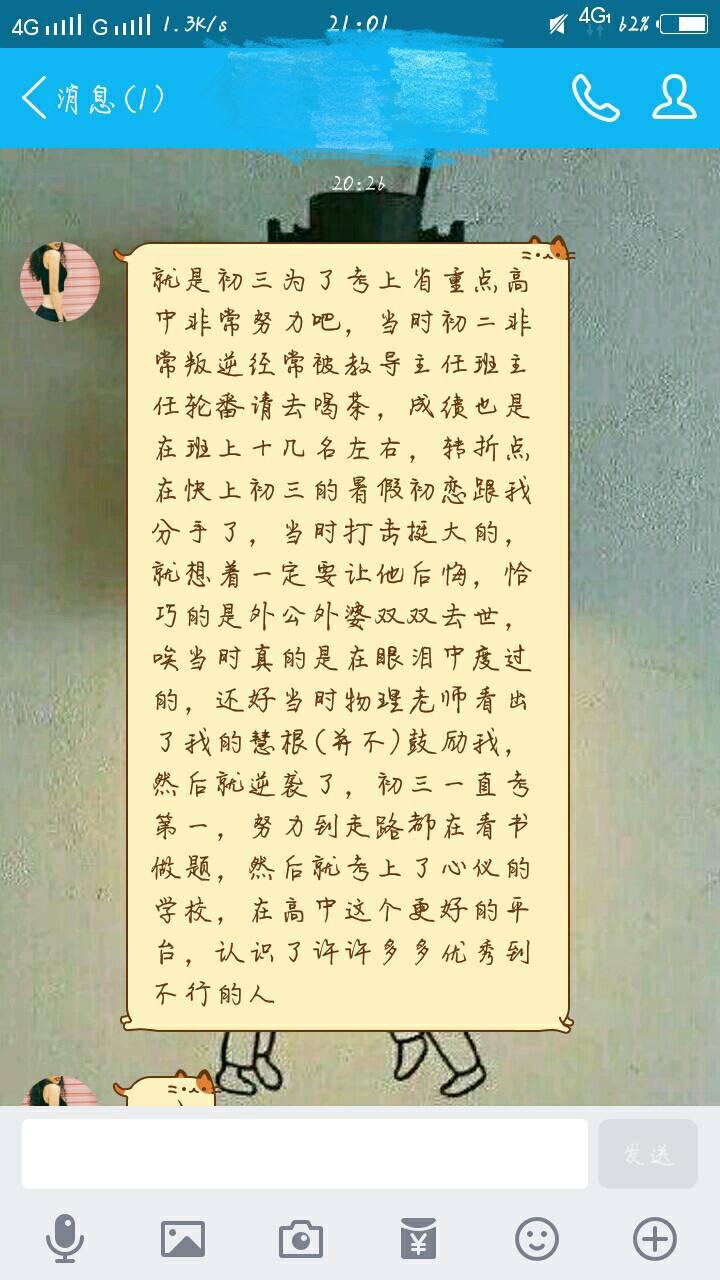 4G G 1.3K/s 21:01 4G1 62%
消息(1)
20:26
就是初三为了考上省重点高
中非常努力吧，当时初二非
常叛逆经常被教导主任班主
任轮番请去喝茶，成绩也是
在班上十几名左右，转折点
在快上初三的暑假初恋跟我
分手了，当时打击挺大的，
就想着一定要让他后悔，恰
巧的是外公外婆双双去世，
唉当时真的是在眼泪中度过
的，还好当时物理老师看出
了我的慧根(并不)鼓励我，
然后就逆袭了，初三一直考
第一，努力到走路都在看书
做题，然后就考上了心仪的
学校，在高中这个更好的平
台，认识了许许多多优秀到
不行的人
发送